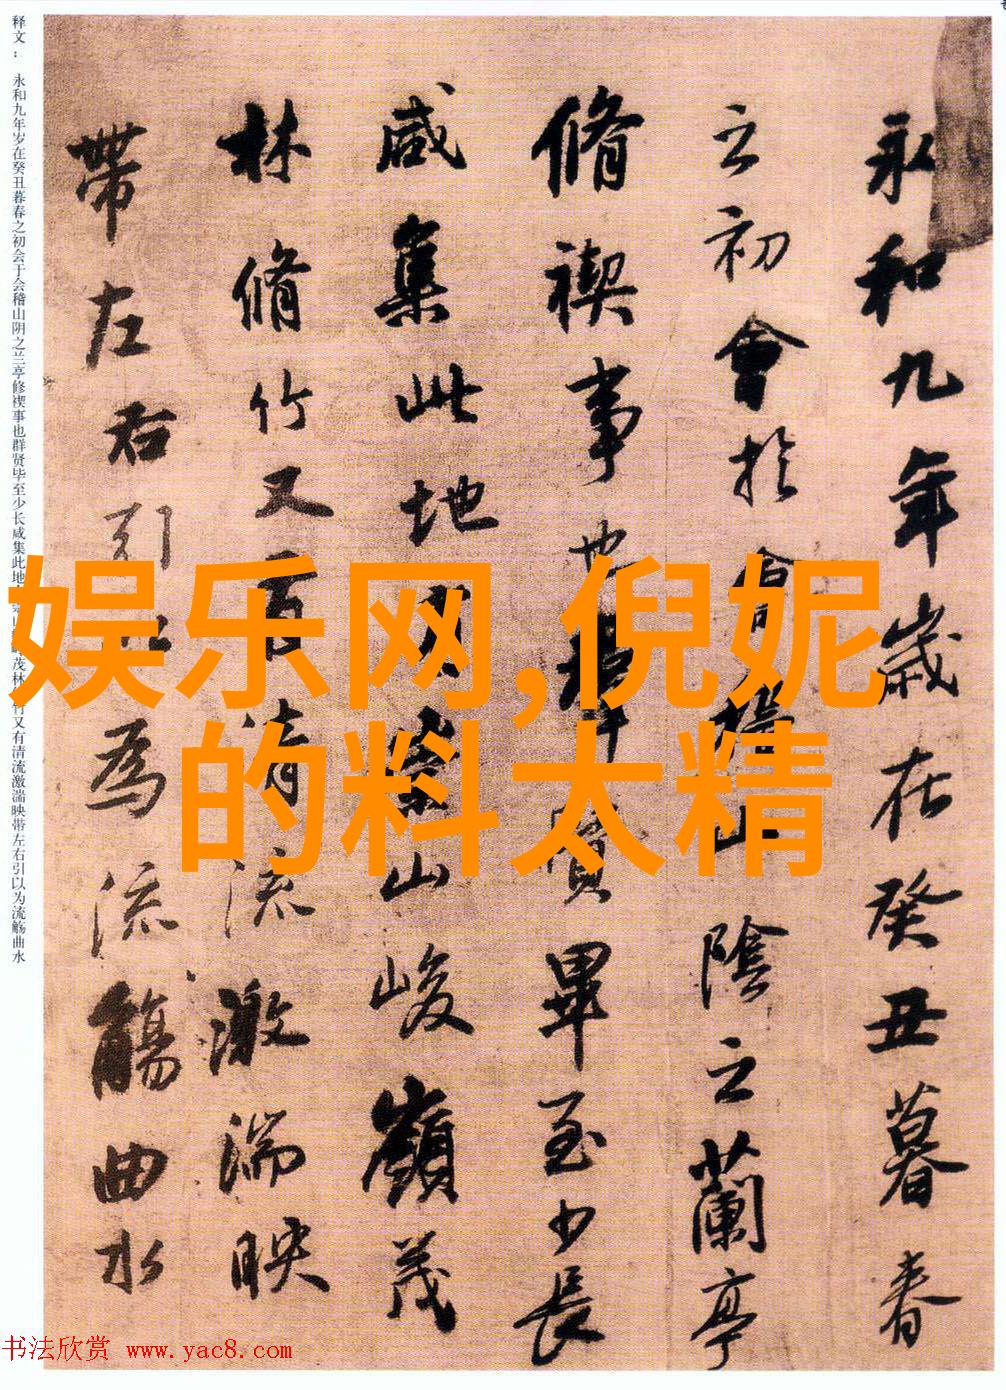 永和九年歲在癸丑暮春
之初會於會稽山陰之蘭亭
脩禊事也群賢畢至少長
咸集此地崇山峻嶺茂
林脩竹又有清流激湍映
帶左右引以為流觴曲水
释文：永和九年岁在癸丑暮春之初会于会稽山阴之兰亭修禊事也群贤毕至少长咸集此地茂林竹又有清流激湍映带左右引以为流觞曲水
娱乐网,倪妮
的料太精
书法欣赏 www.yac8.com